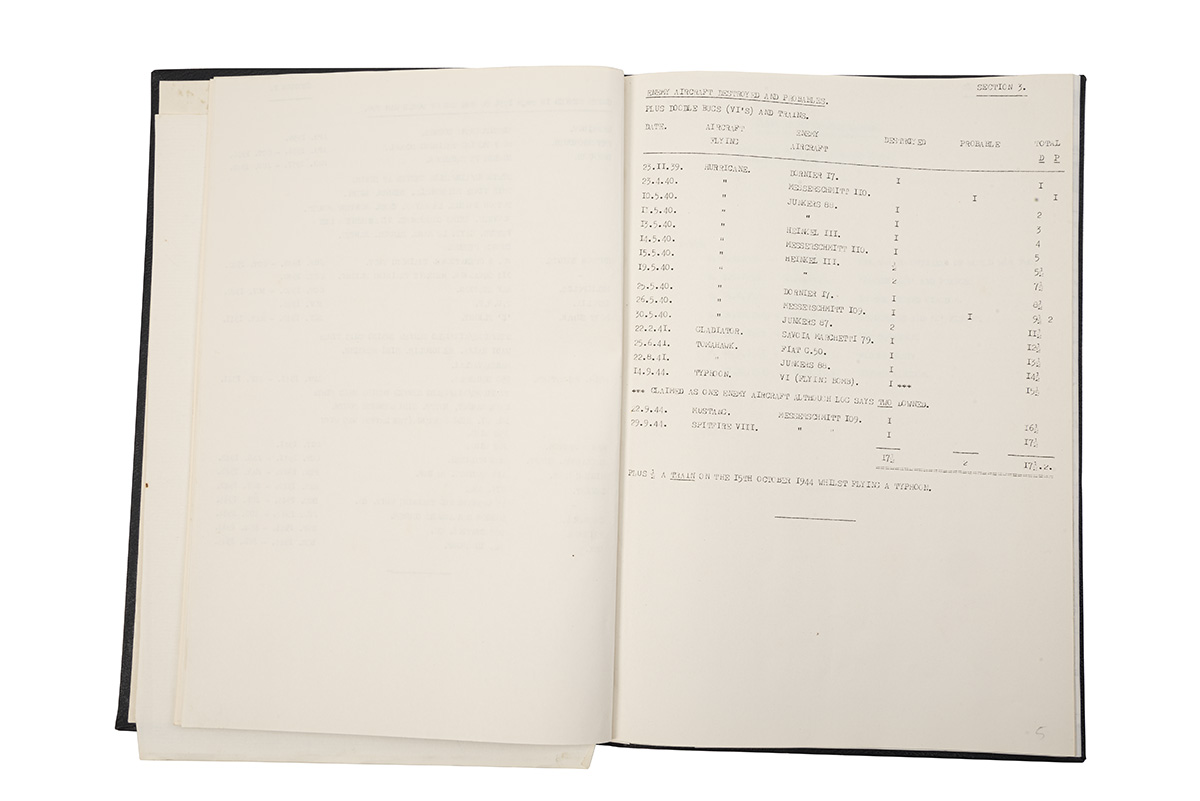 SECTION 3.
ENEMY AIRCRAFT DESTROYED AND PROBABLES.
PLUS DOODLE BUGS (VI'S) AND TRAINS.
DATE. AIRCRAFT FLYING ENEMY AIRCRAFT DESTROYED PROBABLE TOTAL
D P
23.II.39. HURRICANE. DORNIER I7. I I
23.4.40. " MESSERSCHMITT II0. I " I
I0.5.40. " JUNKERS 88. I 2
II.5.40. " " I 3
I3.5.40. " HEINKEL III. I 4
I4.5.40. " MESSERSCHMITT II0. I 5
I5.5.40. " HEINKEL III. ½ 5½
I9.5.40. " " 2 7½
25.5.40. " DORNIER I7. I 8½
26.5.40. " MESSERSCHMITT I09. I I 9½ 2
30.5.40. " JUNKERS 87. 2 II½
22.2.4I. GLADIATOR. SAVOIA MARCHETTI 79. I I2½
25.6.4I. TOMAHAWK. FIAT G.50. I I3½
22.8.4I. " JUNKERS 88. I I4½
I4.9.44. TYPHOON. VI (FLYING BOMB). I *** I5½
*** CLAIMED AS ONE ENEMY AIRCRAFT ALTHOUGH LOG SAYS TWO DOWNED.
22.9.44. MUSTANG. MESSERSCHMITT I09. I I6½
29.9.44. SPITFIRE VIII. " " I I7½
I7½ 2 I7½.2.
PLUS ½ A TRAIN ON THE I5TH OCTOBER I944 WHILST FLYING A TYPHOON.
5